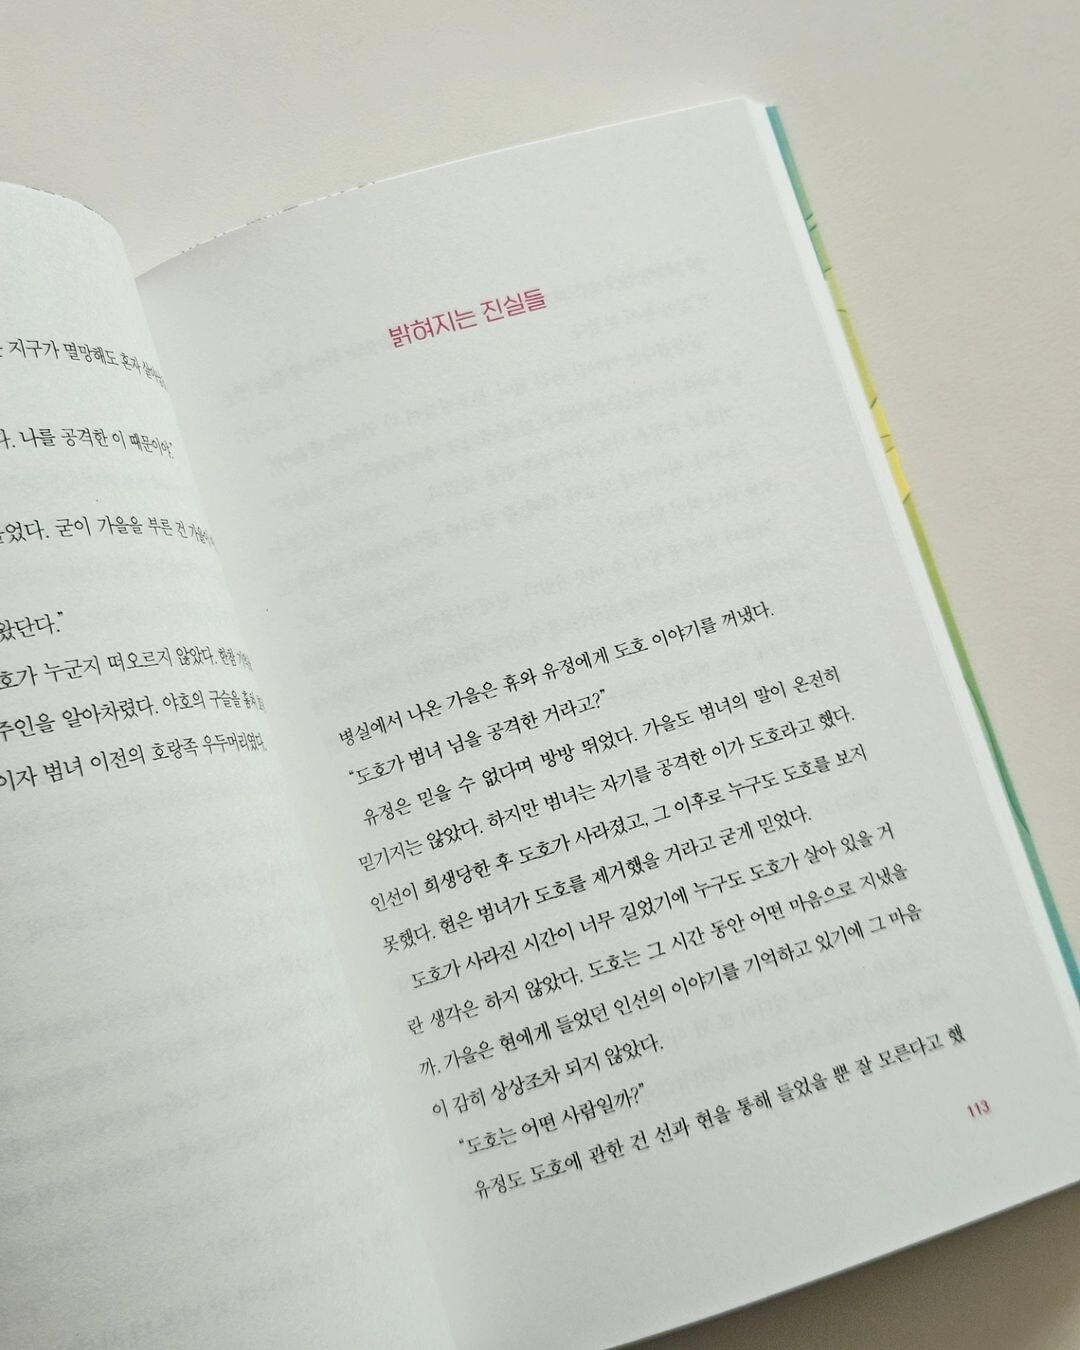 지구가 멸망해도 혼자
다. 나를 공격한 이 때문이야.”
굳이 가을을 부른 건
왔단다.”
호가 누군지 떠오르지 않았다. 한참
주인을 알아차렸다. 야호의 구슬을 훔쳐
이자 범녀 이전의 호랑족 우두머리였다.
밝혀지는 진실들
병실에서 나온 가을은 휴와 유정에게 도호 이야기를 꺼냈다.
“도호가 범녀 님을 공격한 거라고?”
유정은 믿을 수 없다며 방방 뛰었다. 가을도 범녀의 말이 온전히
믿기지는 않았다. 하지만 범녀는 자기를 공격한 이가 도호라고 했다.
인선이 희생당한 후 도호가 사라졌고, 그 이후로 누구도 도호를 보지
못했다. 현은 범녀가 도호를 제거했을 거라고 굳게 믿었다.
도호가 사라진 시간이 너무 길었기에 누구도 도호가 살아 있을 거
란 생각은 하지 않았다. 도호는 그 시간 동안 어떤 마음으로 지냈을
까. 가을은 현에게 들었던 인선의 이야기를 기억하고 있기에 그 마음
이 감히 상상조차 되지 않았다.
“도호는 어떤 사람일까?”
유정도 도호에 관한 건 선과 현을 통해 들었을 뿐 잘 모른다고 했
113